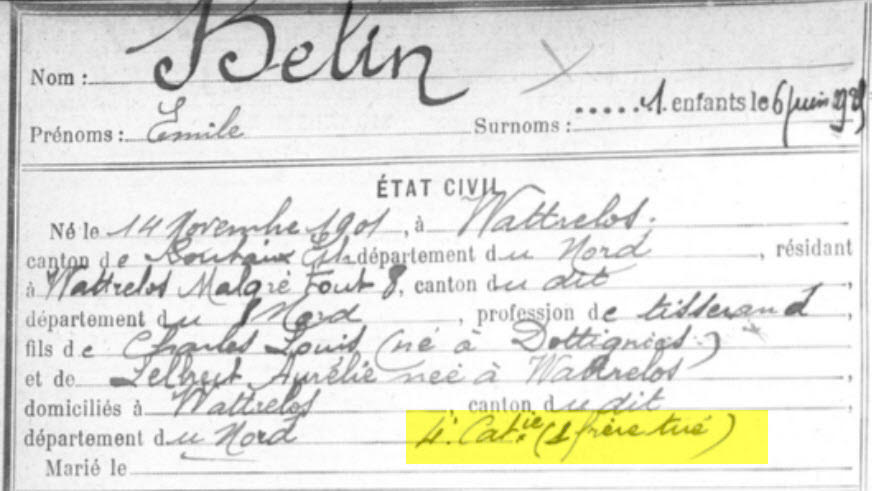 Nom : Belin
1 enfants le 6 juin
Prénoms : Emile Surnoms :
ÉTAT CIVIL
Né le 14 Novembre 1901, à Wattrelos.
canton de Roubaix Est département du Nord, résidant
à Wattrelos Malgré Tout 8, canton du dit,
département du Nord, profession de tisserand,
fils de Charles Louis (né à Dottignies)
et de Aurélie née à Wattrelos,
domiciliés à Wattrelos, canton du dit,
département du Nord 4e Catie (1 frère tué)
Marié le